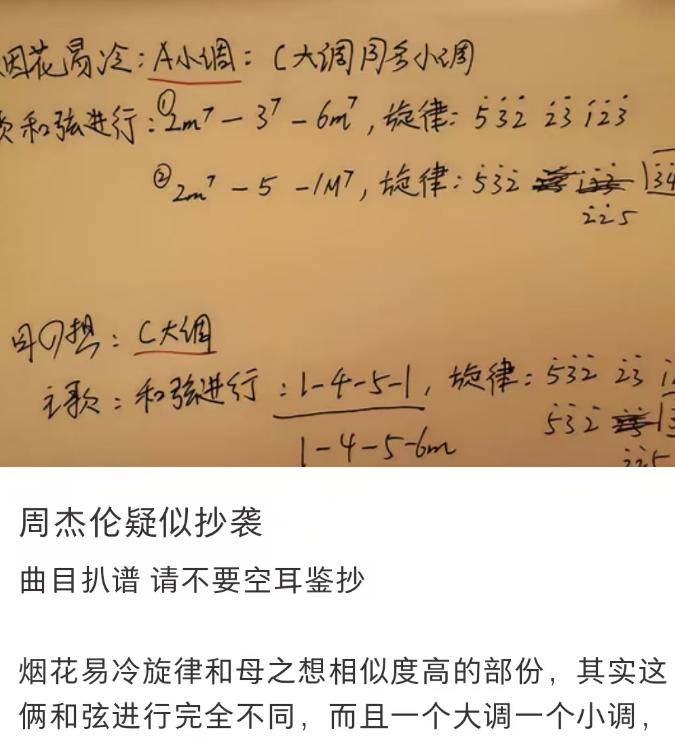 烟花易冷：A小调：C大调同名小调
和弦进行：①2m⁷－3⁷－6m⁷，旋律：5̇3̇2̇ 2̇3̇ 1̇2̇3̇
②2m⁷－5－1M⁷，旋律：5̇3̇2̇
2̇2̇5
C大调
主歌：和弦进行：1－4－5－1，旋律：5̇3̇2̇ 2̇3̇
5̇3̇2̇
1－4－5－6m
周杰伦疑似抄袭
曲目扒谱 请不要空耳鉴抄
烟花易冷旋律和母之想相似度高的部份，其实这
俩和弦进行完全不同，而且一个大调一个小调，